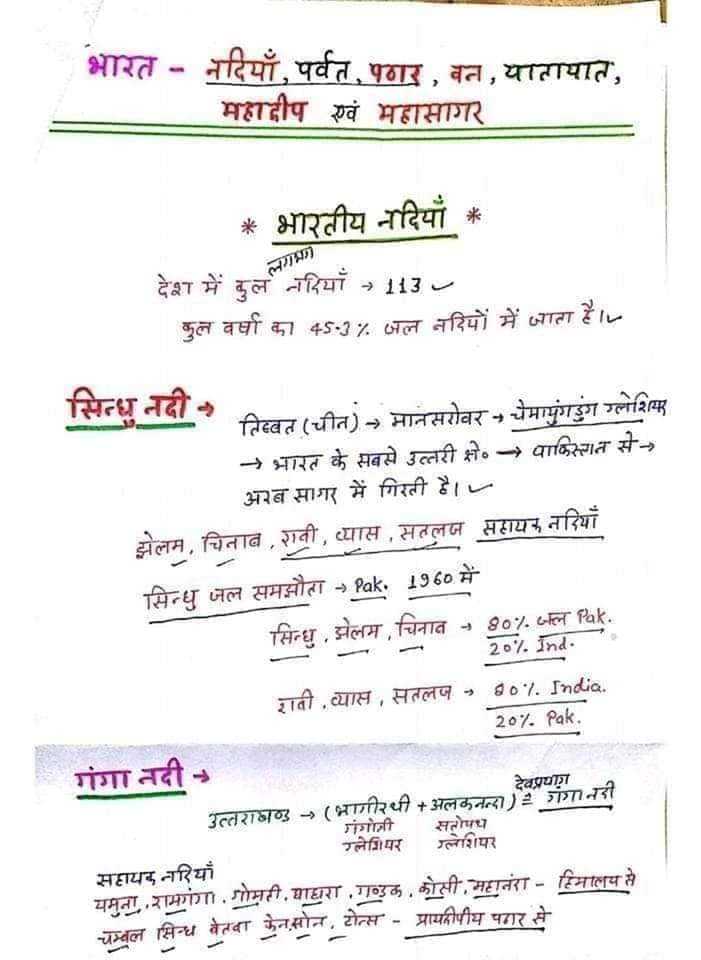 भारत - नदियाँ, पर्वत, पठार, वन, यातायात,
महाद्वीप एवं महासागर
* भारतीय नदियाँ *
लगभग
देश में कुल नदियाँ → 113
कुल वर्षा का 45.3% जल नदियों में जाता है।
सिन्धु नदी →
तिब्बत (चीन) → मानसरोवर → चेमायुंगडुंग ग्लेशियर
→ भारत के सबसे उत्तरी क्षे० → पाकिस्तान से →
अरब सागर में गिरती है।
झेलम, चिनाब, रावी, व्यास, सतलज सहायक नदियाँ
सिन्धु जल समझौता → Pak. 1960 में
सिन्धु, झेलम, चिनाब → 80% जल Pak.
20% Ind.
रावी, व्यास, सतलज → 80% India.
20% Pak.
गंगा नदी →
देवप्रयाग
उत्तराखण्ड → (भागीरथी + अलकनन्दा) = गंगा नदी
गंगोत्री सतोपथ
ग्लेशियर ग्लेशियर
सहायक नदियाँ
यमुना, रामगंगा, गोमती, घाघरा, गण्डक, कोसी, महानंदा - हिमालय से
चम्बल सिन्ध बेतवा केन, सोन, टोन्स - प्रायद्वीपीय पठार से